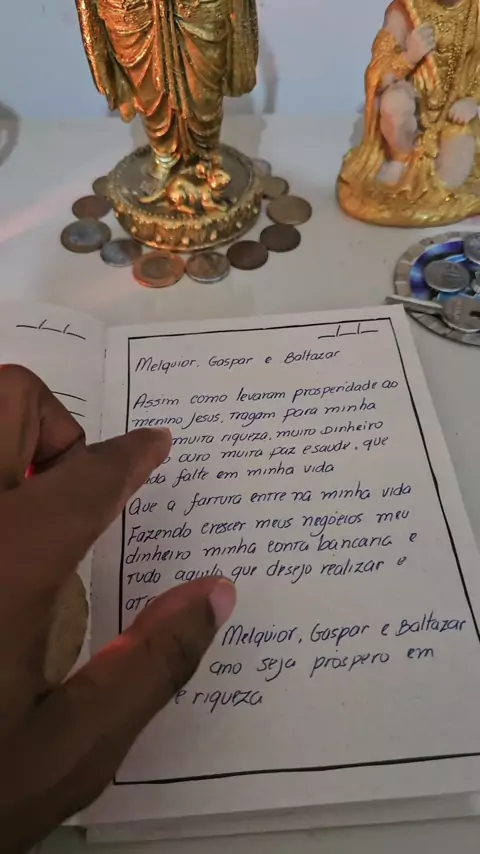 Melquior, Gaspar e Baltazar
Assim como levaram prosperidade ao
menino Jesus, tragam para minha
muita riqueza, muito dinheiro
ouro muita paz e saude, que
falte em minha vida
Que a fartura entre na minha vida
Fazendo crescer meus negócios meu
dinheiro minha conta bancaria e
tudo aquilo que desejo realizar e
Melquior, Gaspar e Baltazar
ano seja próspero em
e riqueza